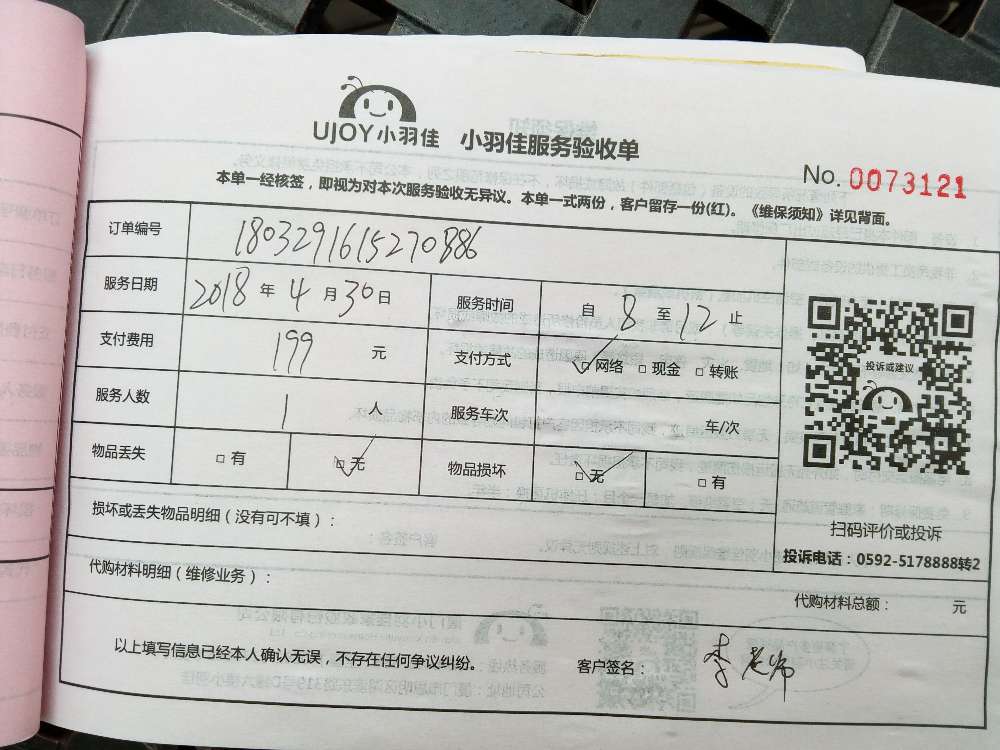 UJOY小羽佳 小羽佳服务验收单
No. 0073121
本单一经核签，即视为对本次服务验收无异议。本单一式两份，客户留存一份(红)。《维保须知》详见背面。
订单编号 1803291615270886
服务日期 2018 年 4 月 30 日 服务时间 自 8 至 12 止
支付费用 199 元 支付方式 ☑网络 □现金 □转账
服务人数 1 人 服务车次 车/次
物品丢失 □有 ☑无 物品损坏 ☑无 □有
投诉或建议
扫码评价或投诉
投诉电话：0592-5178888转2
损坏或丢失物品明细（没有可不填）：
代购材料明细（维修业务）：
代购材料总额： 元
以上填写信息已经本人确认无误，不存在任何争议纠纷。 客户签名： 李老师